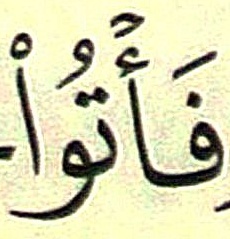 فَأۡتُواْ